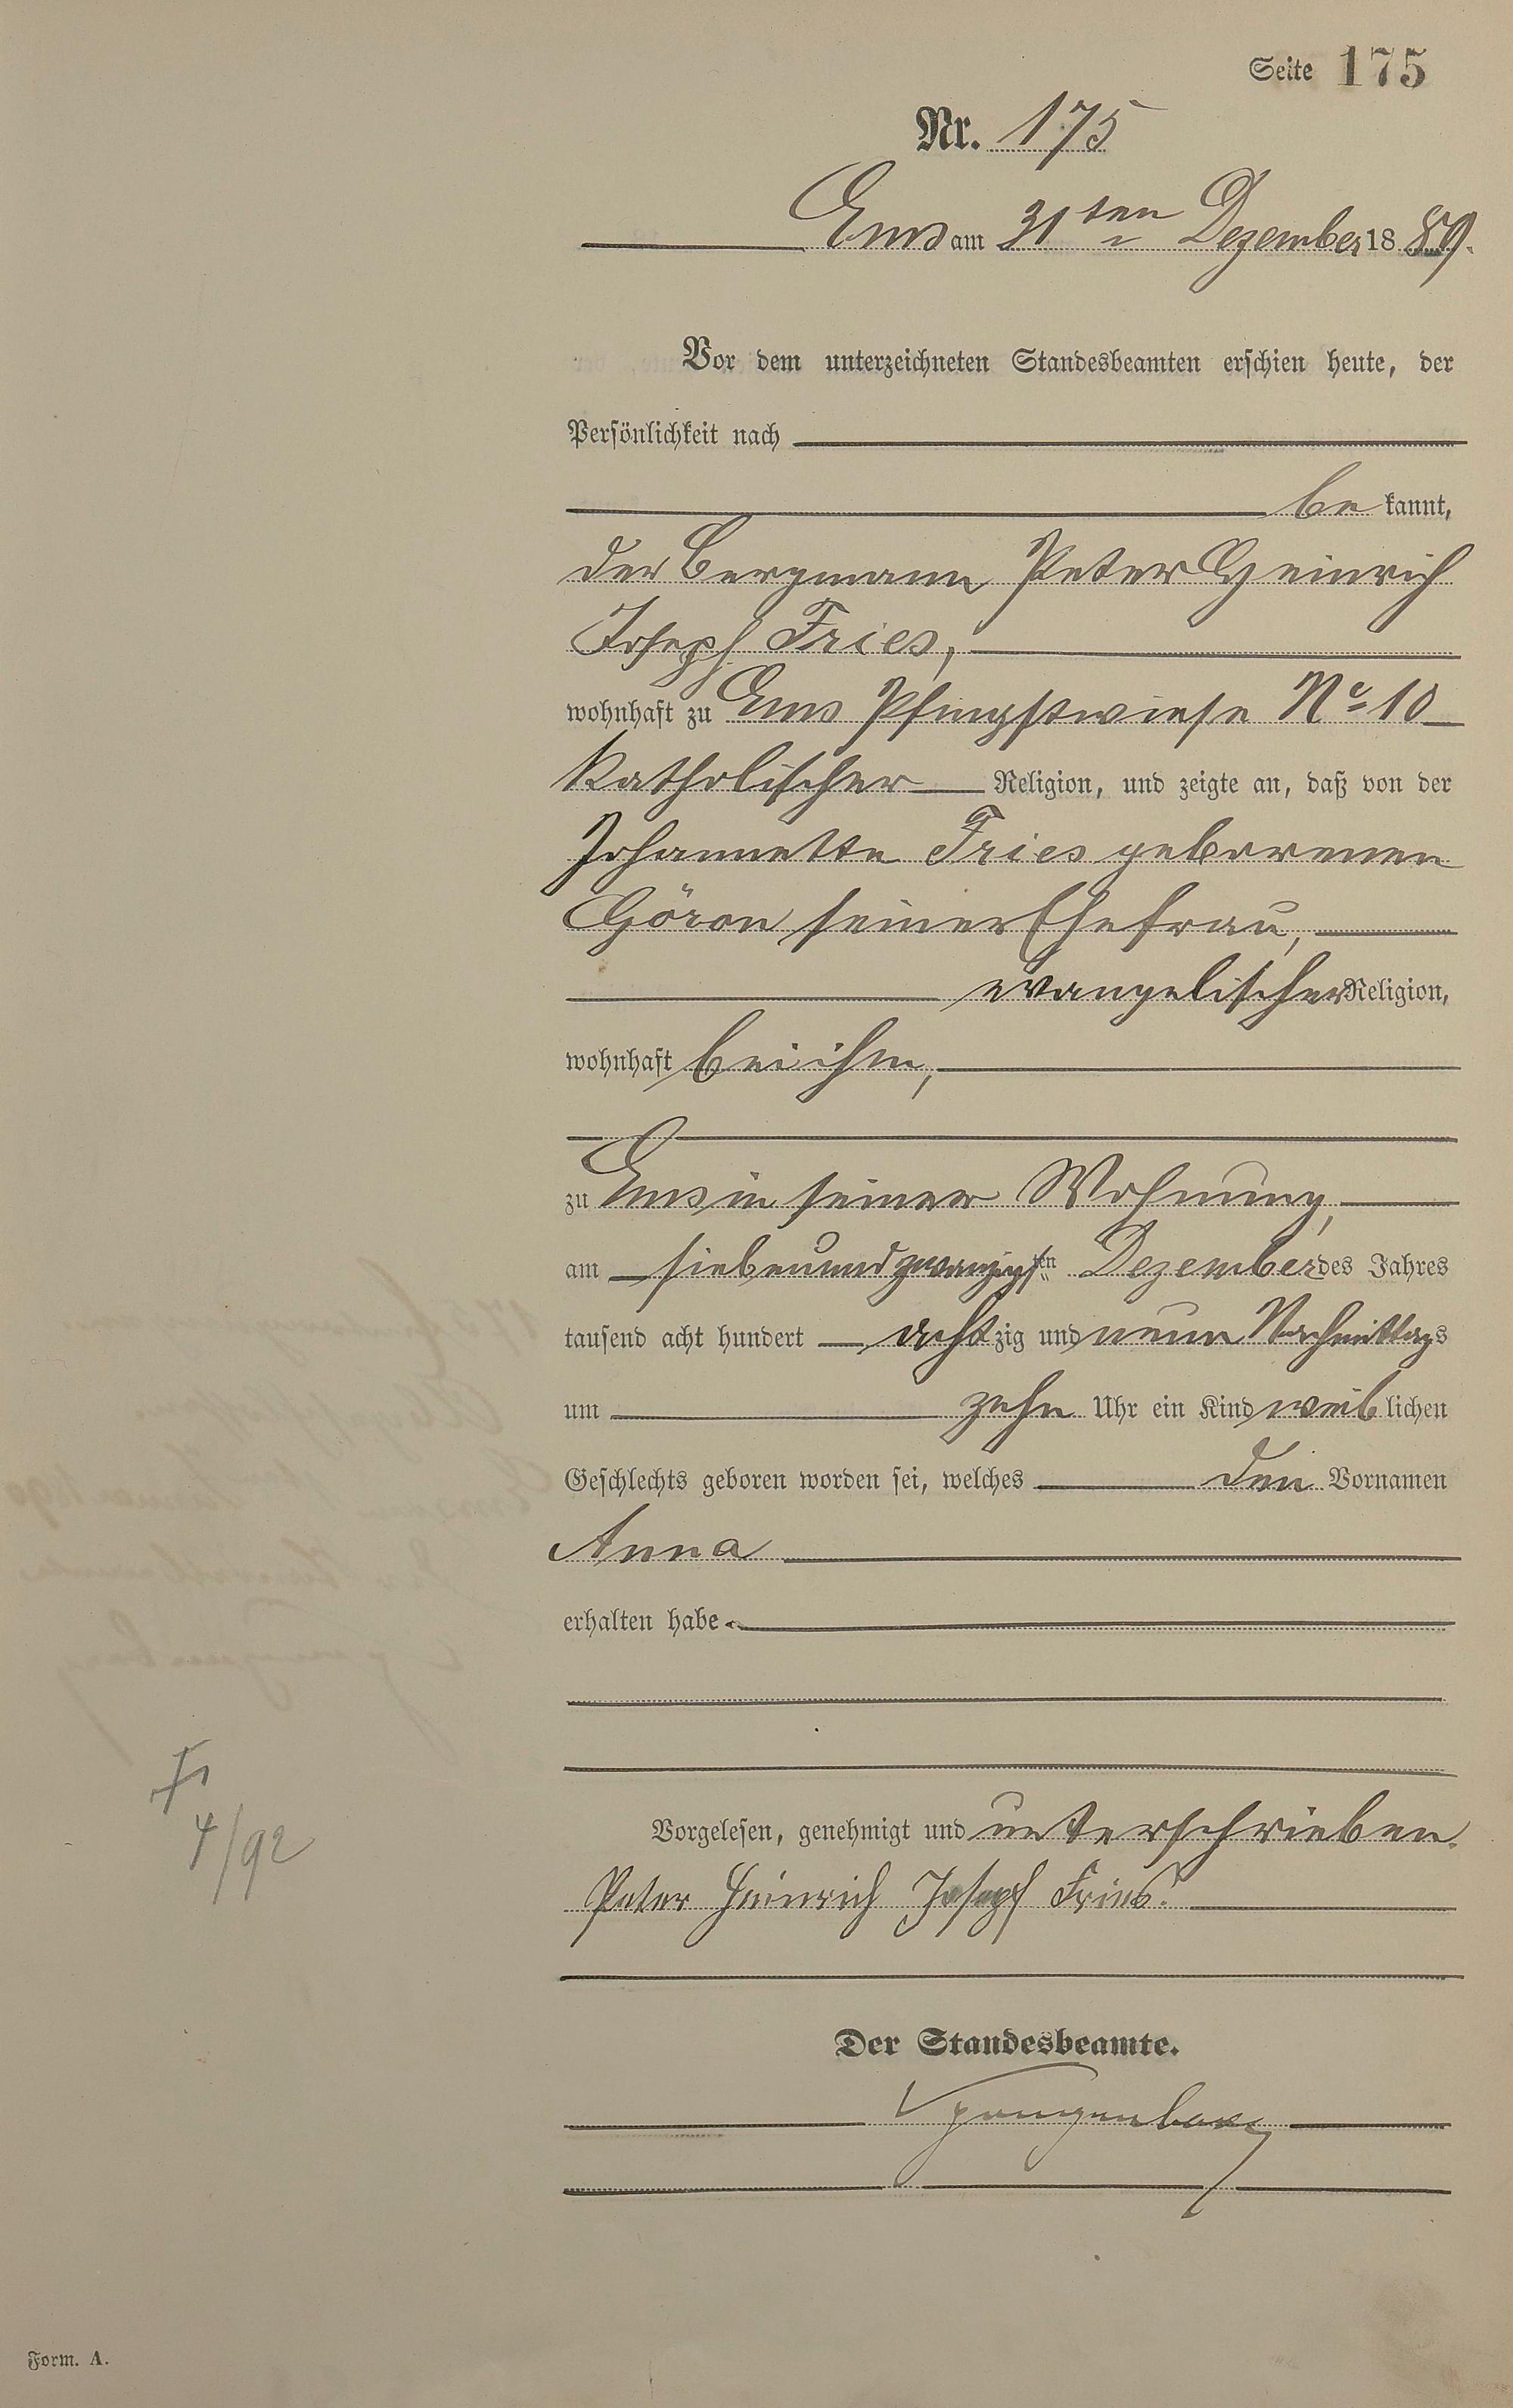 Seite 175
Nr. 175
Ems am 31ten Dezember 1889.
Vor dem unterzeichneten Standesbeamten erschien heute, der
Persönlichkeit nach
be kannt,
der Bergmann Peter Heinrich
Joseph Fries,
wohnhaft zu Ems Pfingstwiese No 10
katholischer Religion, und zeigte an, daß von der
Johannette Fries geborenen
Göron seiner Ehefrau,
evangelischer Religion,
wohnhaft bei ihm,
zu Ems in seiner Wohnung,
am siebenundzwanzigsten Dezember des Jahres
tausend acht hundert achtzig und neun Nachmittags
um zehn Uhr ein Kind weiblichen
Geschlechts geboren worden sei, welches den Vornamen
Anna
erhalten habe.
4/92
Vorgelesen, genehmigt und unterschrieben.
Peter Heinrich Joseph Fries.
Der Standesbeamte.
Form. A.